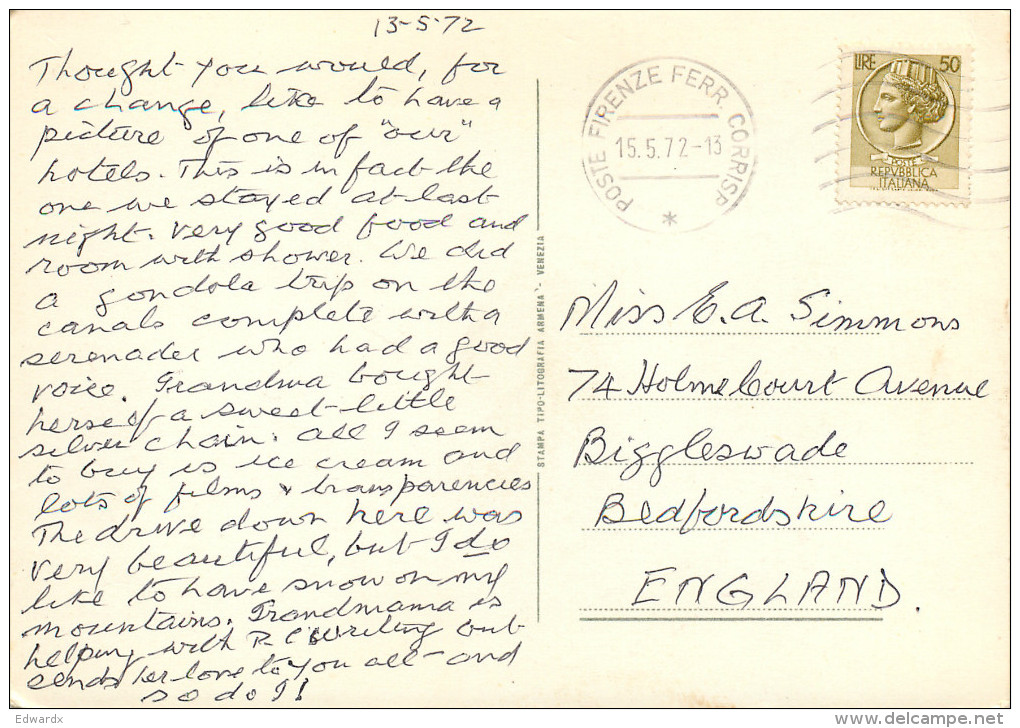 13-5-72
Thought you would, for
a change, like to have a
picture of one of "our"
hotels. This is in fact the
one we stayed at last
night. Very good food and
room with shower. We did
a gondola trip on the
canals complete with a
serenader who had a good
voice. Grandma bought
herself a sweet little
silver chain. All I seem
to buy is ice cream and
lots of films & transparencies
The drive down here was
very beautiful, but I do
like to have snow on my
mountains. Grandmama is
helping with P.C. writing but
sends her love to you all - and
so do I!
STAMPA TIPO-LITOGRAFIA ARMENA - VENEZIA
POSTE FIRENZE FERR. CORRISP.
15.5.72-13
*
LIRE 50
POSTE
REPVBBLICA
ITALIANA
Miss E. A. Simmons
74 Holme Court Avenue
Biggleswade
Bedfordshire
ENGLAND.
Edwardx
delcampe.net